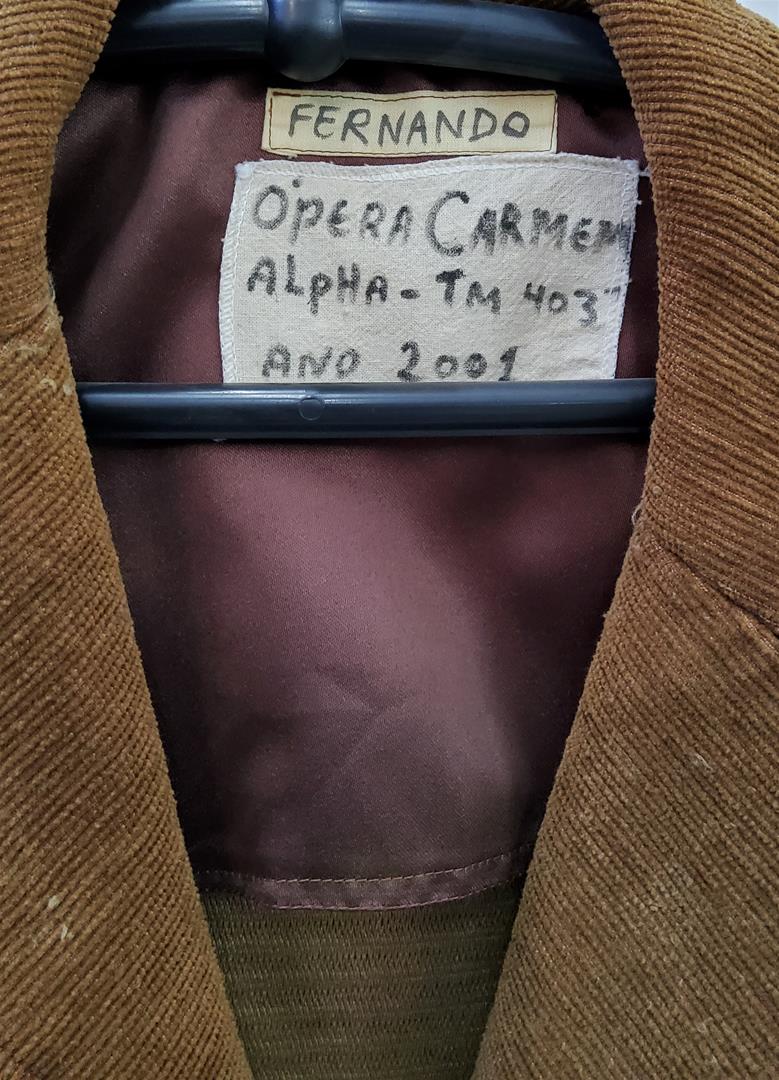 FERNANDO
ÓPERA CARMEM
ALPHA - TM 403
ANO 2001